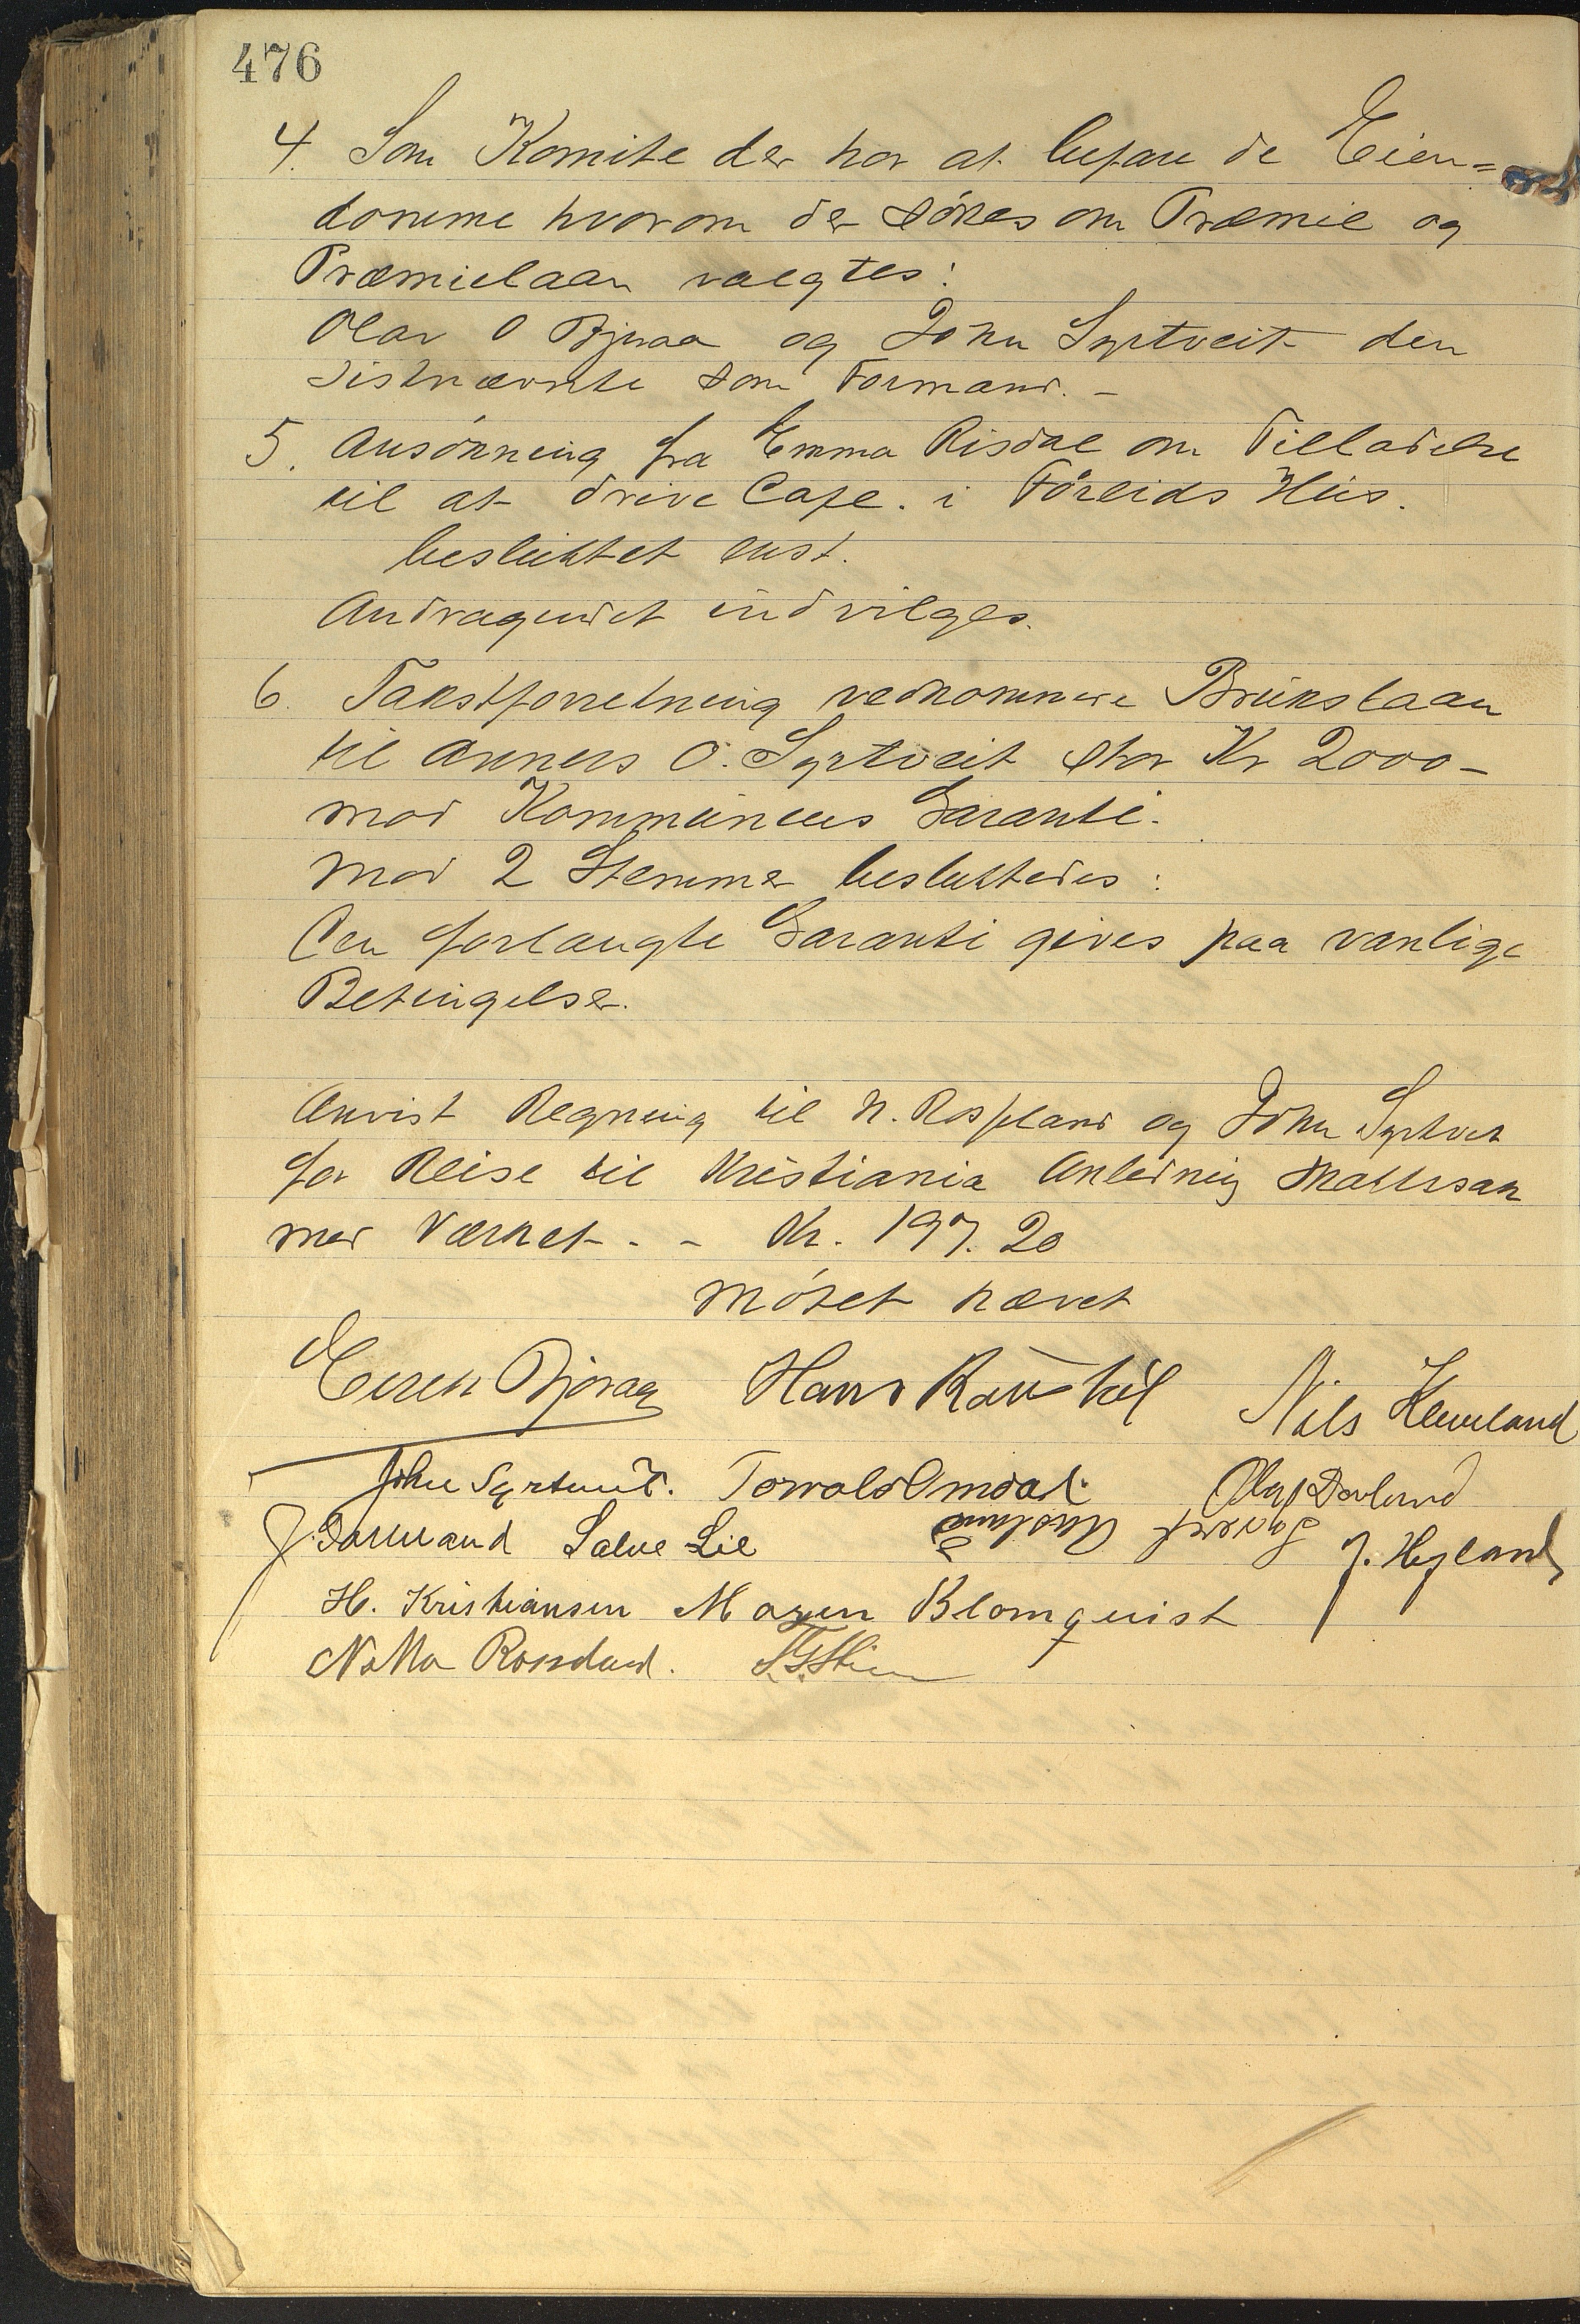 476
4. Som Komite der har at befare de Eien=
domme hvorom der søkes om Præmie og
Præmielaan valgtes:
Olav O Bjuraa og John Syrtveit den
sistnævnte som Formand. –
5. Ansøkning fra Emma Risdal om Tilladelse
til at drive Cafe. i Föreids Hus.
besluttet enst.
Andragendet indvilges.
6. Takstforretning vedkommende Brukslaan
til Anners O. Syrtveit stor Kr 2000 –
mod Kommunens Garanti.
mod 2 Stemmer besluttedes:
Den forlangte Garanti gives paa vanlige
Betingelser.
Anvist Regning til N. Rosseland og John Syrtveit
for Reise til Kristiania Anledning
med Værket - - Kr. 197.20
Møtet hævet
Bjoraa Hans Nils Kleveland
John Syrtveit. Torvald Omdal. Olaf
Salve Lie J. Hegland
H. Kristiansen Maren Blomquist
Rosseland.